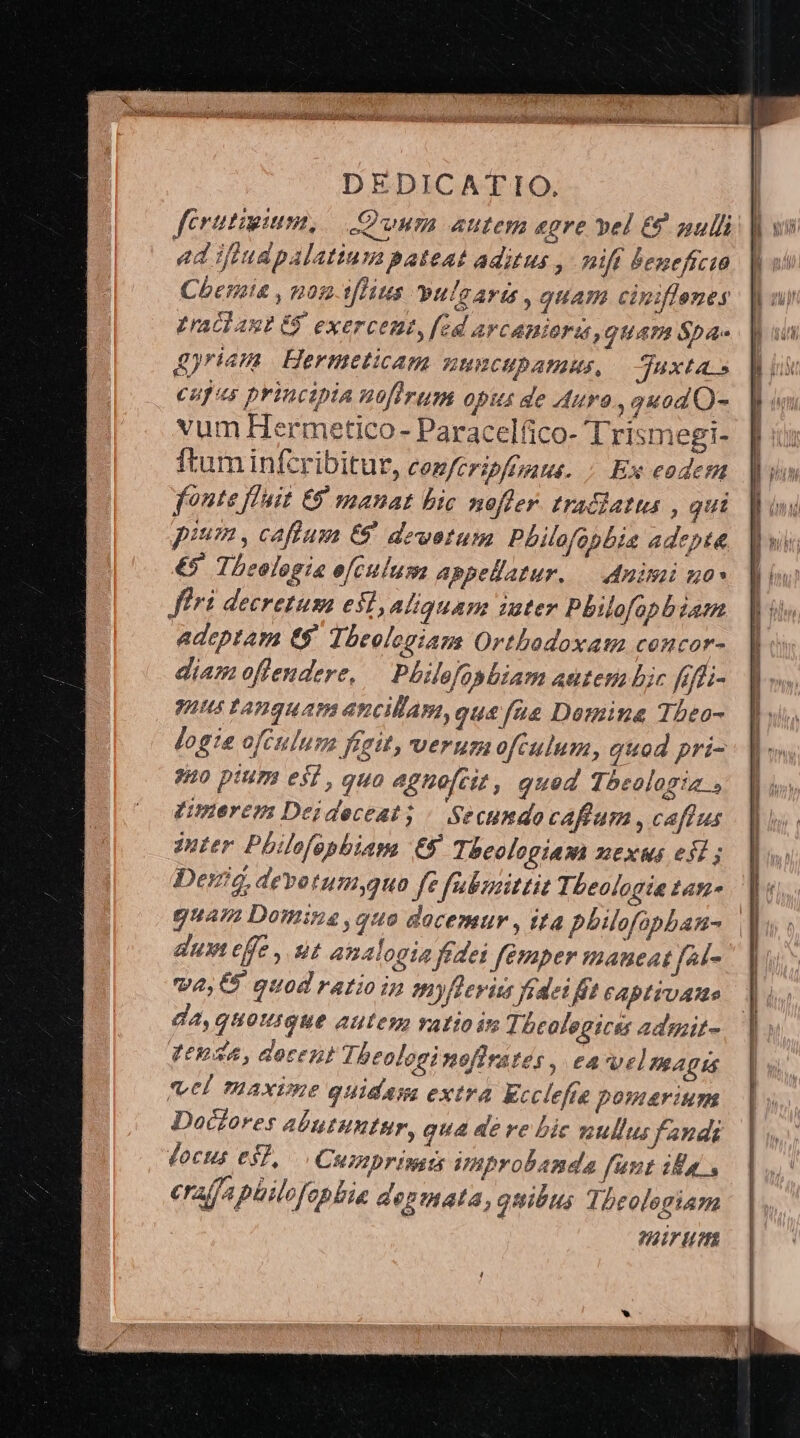 DEDICATIO.
ſcrutinium, Quum autem ægre vel & nulli
ad iſtud palatium pateat aditus, niſi beneficio
Chemiæ, non iſtius vulgaris, quam ciniflones
tractant & exercent, ſed arcanioris, quam Spa-
gyriam Hermeticam nuncupamus, Juxta
cujus principia noſtrum opus de Auro, quod O-
vum Hermetico-Paracelſico-Triſmegi-
ſtum inſcribitur, conſcripſimus. Ex eodem
fonte fluit & manat hic noſter tractatus, qui
pium, caſtum & devotum Philoſophiæ adeptæ
& Theologiæ oſculum appellatur. Animi no-
ſtri decretum eſt, aliquam inter Philoſophiam
adeptam & Theologiam Orthodoxam concor-
diam oſtendere, Philoſophiam autem hic ſiſti-
mus tanquam ancillam, quæ ſuæ Dominæ Theo-
logiæ oſculum figit, verum oſculum, quod pri-
mo pium eſt, quo agnoſcit, quod Theologia
timorem Dei doceat; Secundo caſtum, caſtus
inter Philoſophiam & Theologiam nexus eſt;
Deniq; devotum, quo ſe ſubmittit Theologiæ tan-
quam Dominæ, quo docemur, ita philoſophan-
dum eſſe, ut analogia fidei ſemper maneat ſal-
va, & quod ratio in myſteriis fidei ſit captivan-
da, quouſque autem ratio in Theologicis admit-
tenda, docent Theologi noſtrates, ea vel magis
vel maxime quidam extra Eccleſiæ pomærium
Doctores abutuntur, qua de re hic nullus fandi
locus eſt, Cumprimis improbanda ſunt illa
craſſa philoſophiæ dogmata, quibus Theologiam
mirum